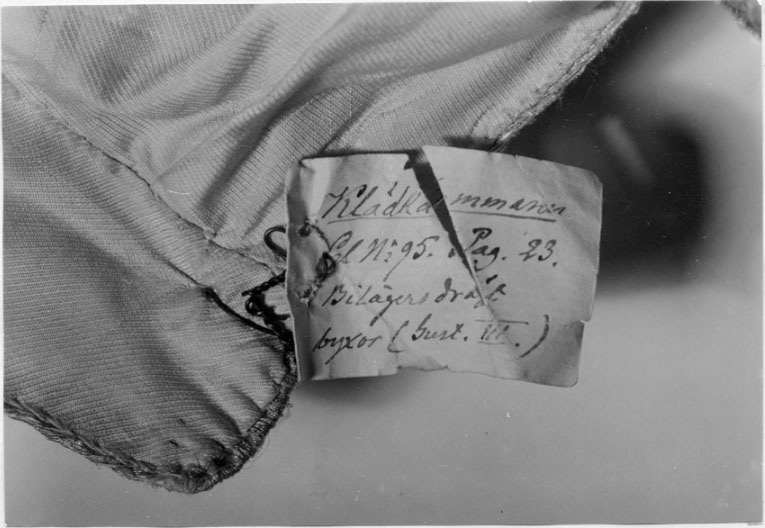 Klädkammaren
Gl N: 95. Pag. 23.
Bilägersdräkt
byxor (Gust. III.)